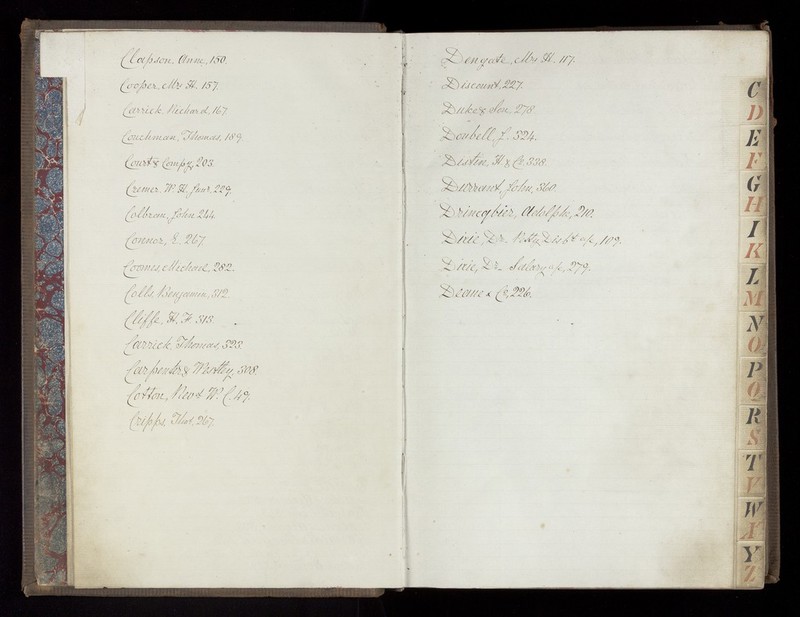 Clapson Anne, 150.
Cooper, Mrs H. 157.
Carrick Richard, 167
Couchman, Thomas, 189.
Court & Compy, 203.
Cremer. W. H. Junr. 229.
Colbran, John 244.
Connor, 267.
Coomes, Michael, 282.
Colls, Benjamin, 312.
Cliffe, H. F. 313.
Carrick, Thomas, 323.
Carpenter & Westley, 308.
Cotton, Revd W. C. 49.
Cripps, Thos. 267.
Dengate, Mrs H. 117.
Discount. 227.
Duke & Son, 278.
Doubell, J. 324.
Distin, H. & Co. 338.
Durrant, John, 360.
Drincqbier, Adolphe, 210.
Dixie, Dr. Petty Disbt a/c, 109.
Dixie, Dr. Salary a/c, 279.
Deane & Co, 226.
C
D
E
F
G
H
I
K
L
M
N
O
P
Q
R
S
T
V
W
X
Y
Z